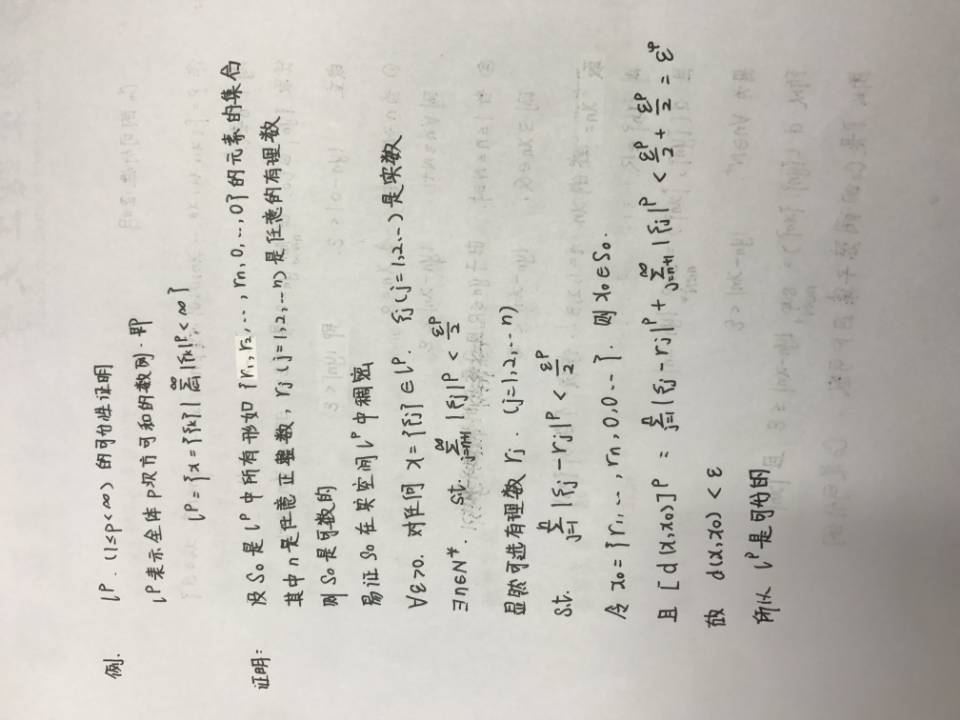 例. lᵖ. (1≤p<∞) 的可分性证明
lᵖ表示全体 p次方可和的数列. 即
lᵖ = {x = {ξk} | ∑_{k=1}^{∞} |ξk|ᵖ < ∞}
证明: 设 S₀ 是 lᵖ 中所有形如 {r₁, r₂, …, rn, 0, …, 0} 的元素的集合
其中 n 是任意正整数, rj (j=1,2,…n) 是任意的有理数
则 S₀ 是可数的
易证 S₀ 在实空间 lᵖ 中稠密
∀ε>0. 对任何 x = {ξj} ∈ lᵖ. ξj (j=1,2,…) 是实数
∃n∈N*. s.t. ∑_{j=n+1}^{∞} |ξj|ᵖ < εᵖ/2
显然可选有理数 rj. (j=1,2,…n)
s.t. ∑_{j=1}^{n} |ξj - rj|ᵖ < εᵖ/2
令 x₀ = {r₁, …, rn, 0, 0 …}. 则 x₀ ∈ S₀.
且 [d(x,x₀)]ᵖ = ∑_{j=1}^{n} |ξj - rj|ᵖ + ∑_{j=n+1}^{∞} |ξj|ᵖ < εᵖ/2 + εᵖ/2 = εᵖ
故 d(x,x₀) < ε
所以 lᵖ 是可分的